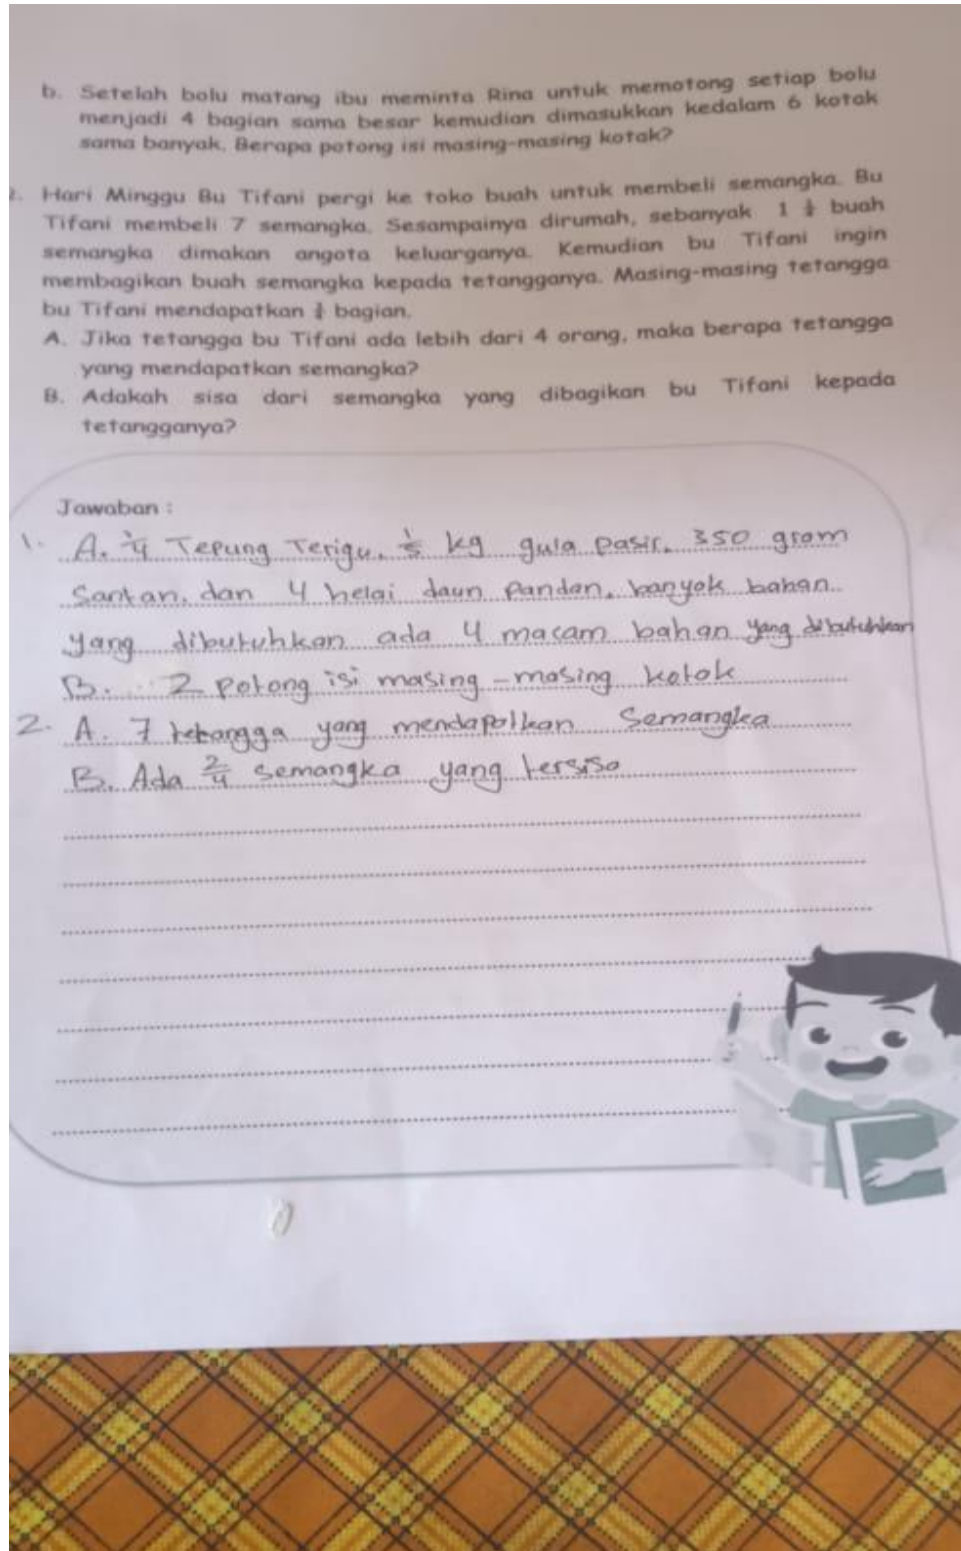 b. Setelah bolu matang ibu meminta Rina untuk memotong setiap bolu
menjadi 4 bagian sama besar kemudian dimasukkan kedalam 6 kotak
sama banyak. Berapa potong isi masing-masing kotak?
2. Hari Minggu Bu Tifani pergi ke toko buah untuk membeli semangka. Bu
Tifani membeli 7 semangka. Sesampainya dirumah, sebanyak 1 buah
semangka dimakan angota keluarganya. Kemudian bu Tifani ingin
membagikan buah semangka kepada tetangganya. Masing-masing tetangga
bu Tifani mendapatkan bagian.
A. Jika tetangga bu Tifani ada lebih dari 4 orang, maka berapa tetangga
yang mendapatkan semangka?
B. Adakah sisa dari semangka yang dibagikan bu Tifani kepada
tetangganya?
Jawaban :
1. A. 1/4 Tepung Terigu. 1/5 kg gula pasir. 350 gram
Santan. dan 4 helai daun pandan. banyak bahan
yang dibutuhkan ada 4 macam bahan yang dibutuhkan
B. 2 potong isi masing-masing kotak
2. A. 7 tetangga yang mendapatkan Semangka
B. Ada 2/4 semangka yang tersisa